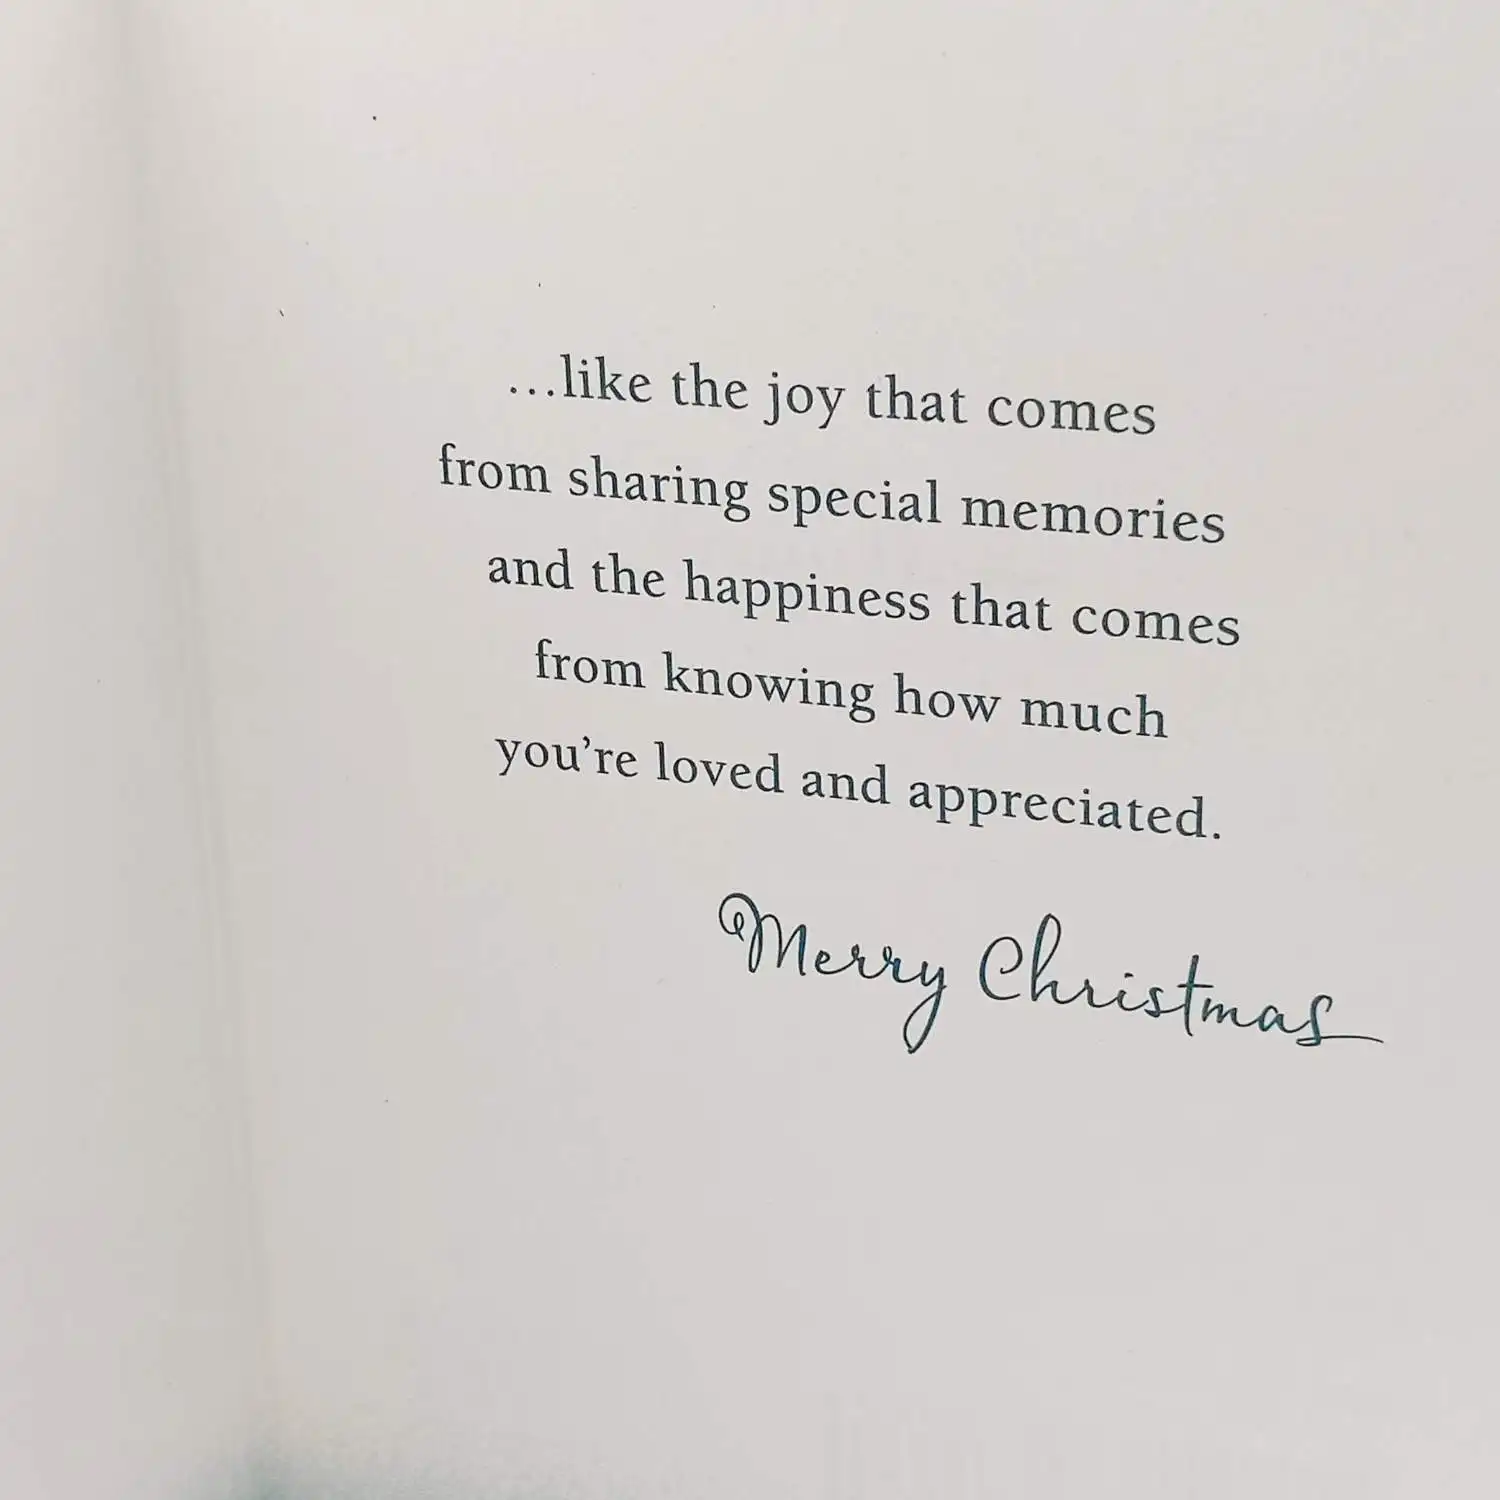 ...like the joy that comes
from sharing special memories
and the happiness that comes
from knowing how much
you're loved and appreciated.
Merry Christmas